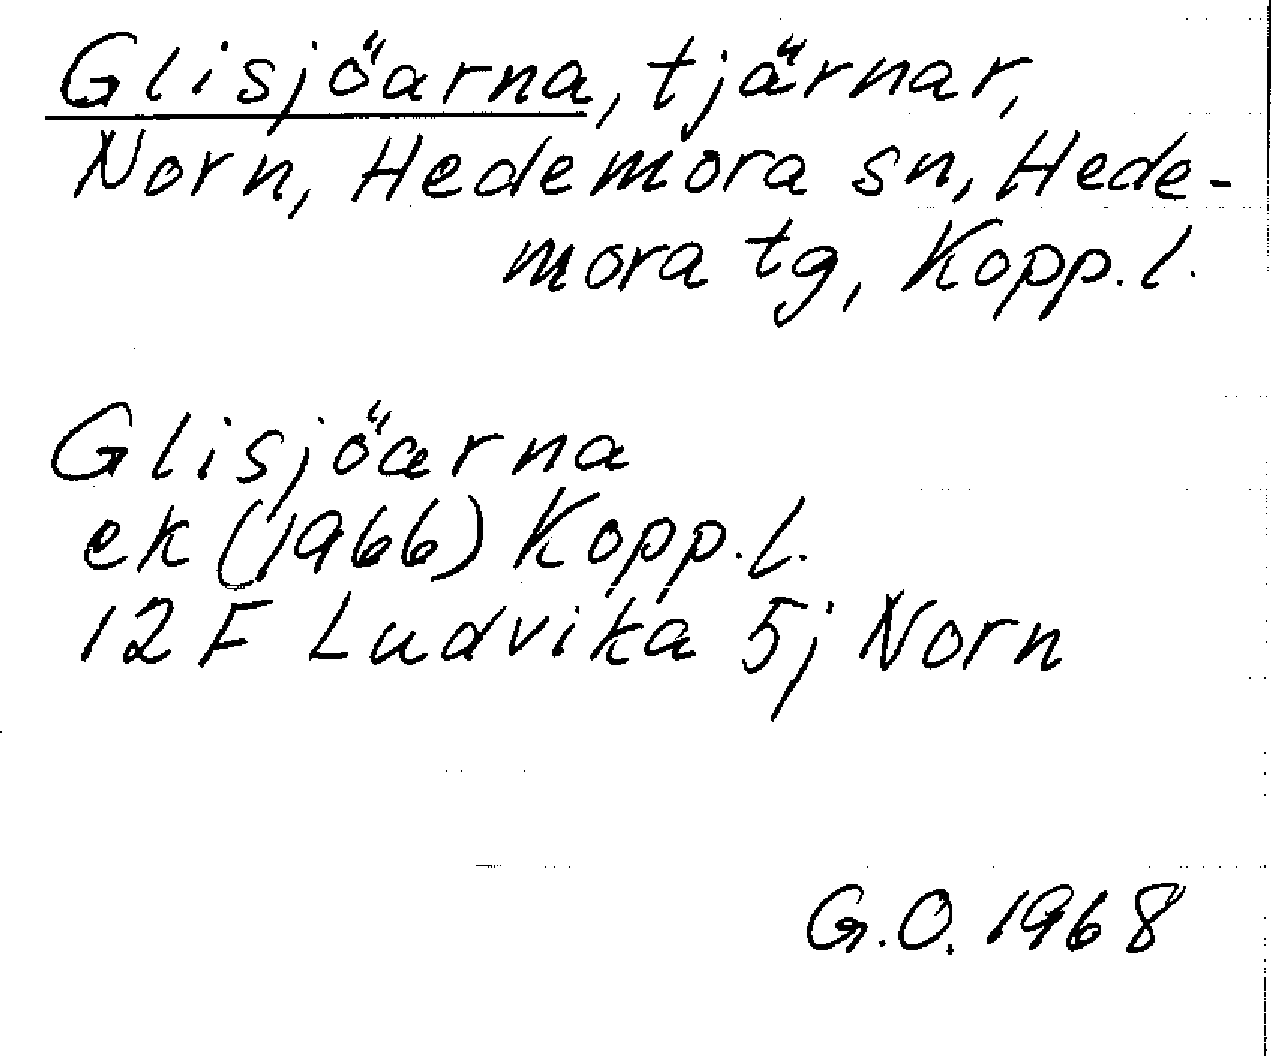 Glisjöarna, tjärnar,
Norn, Hedemora sn, Hede-
mora tg, Kopp. l.
Glisjöarna
ek (1966) Kopp. l.
12 F Ludvika 5j Norn
G.O. 1968